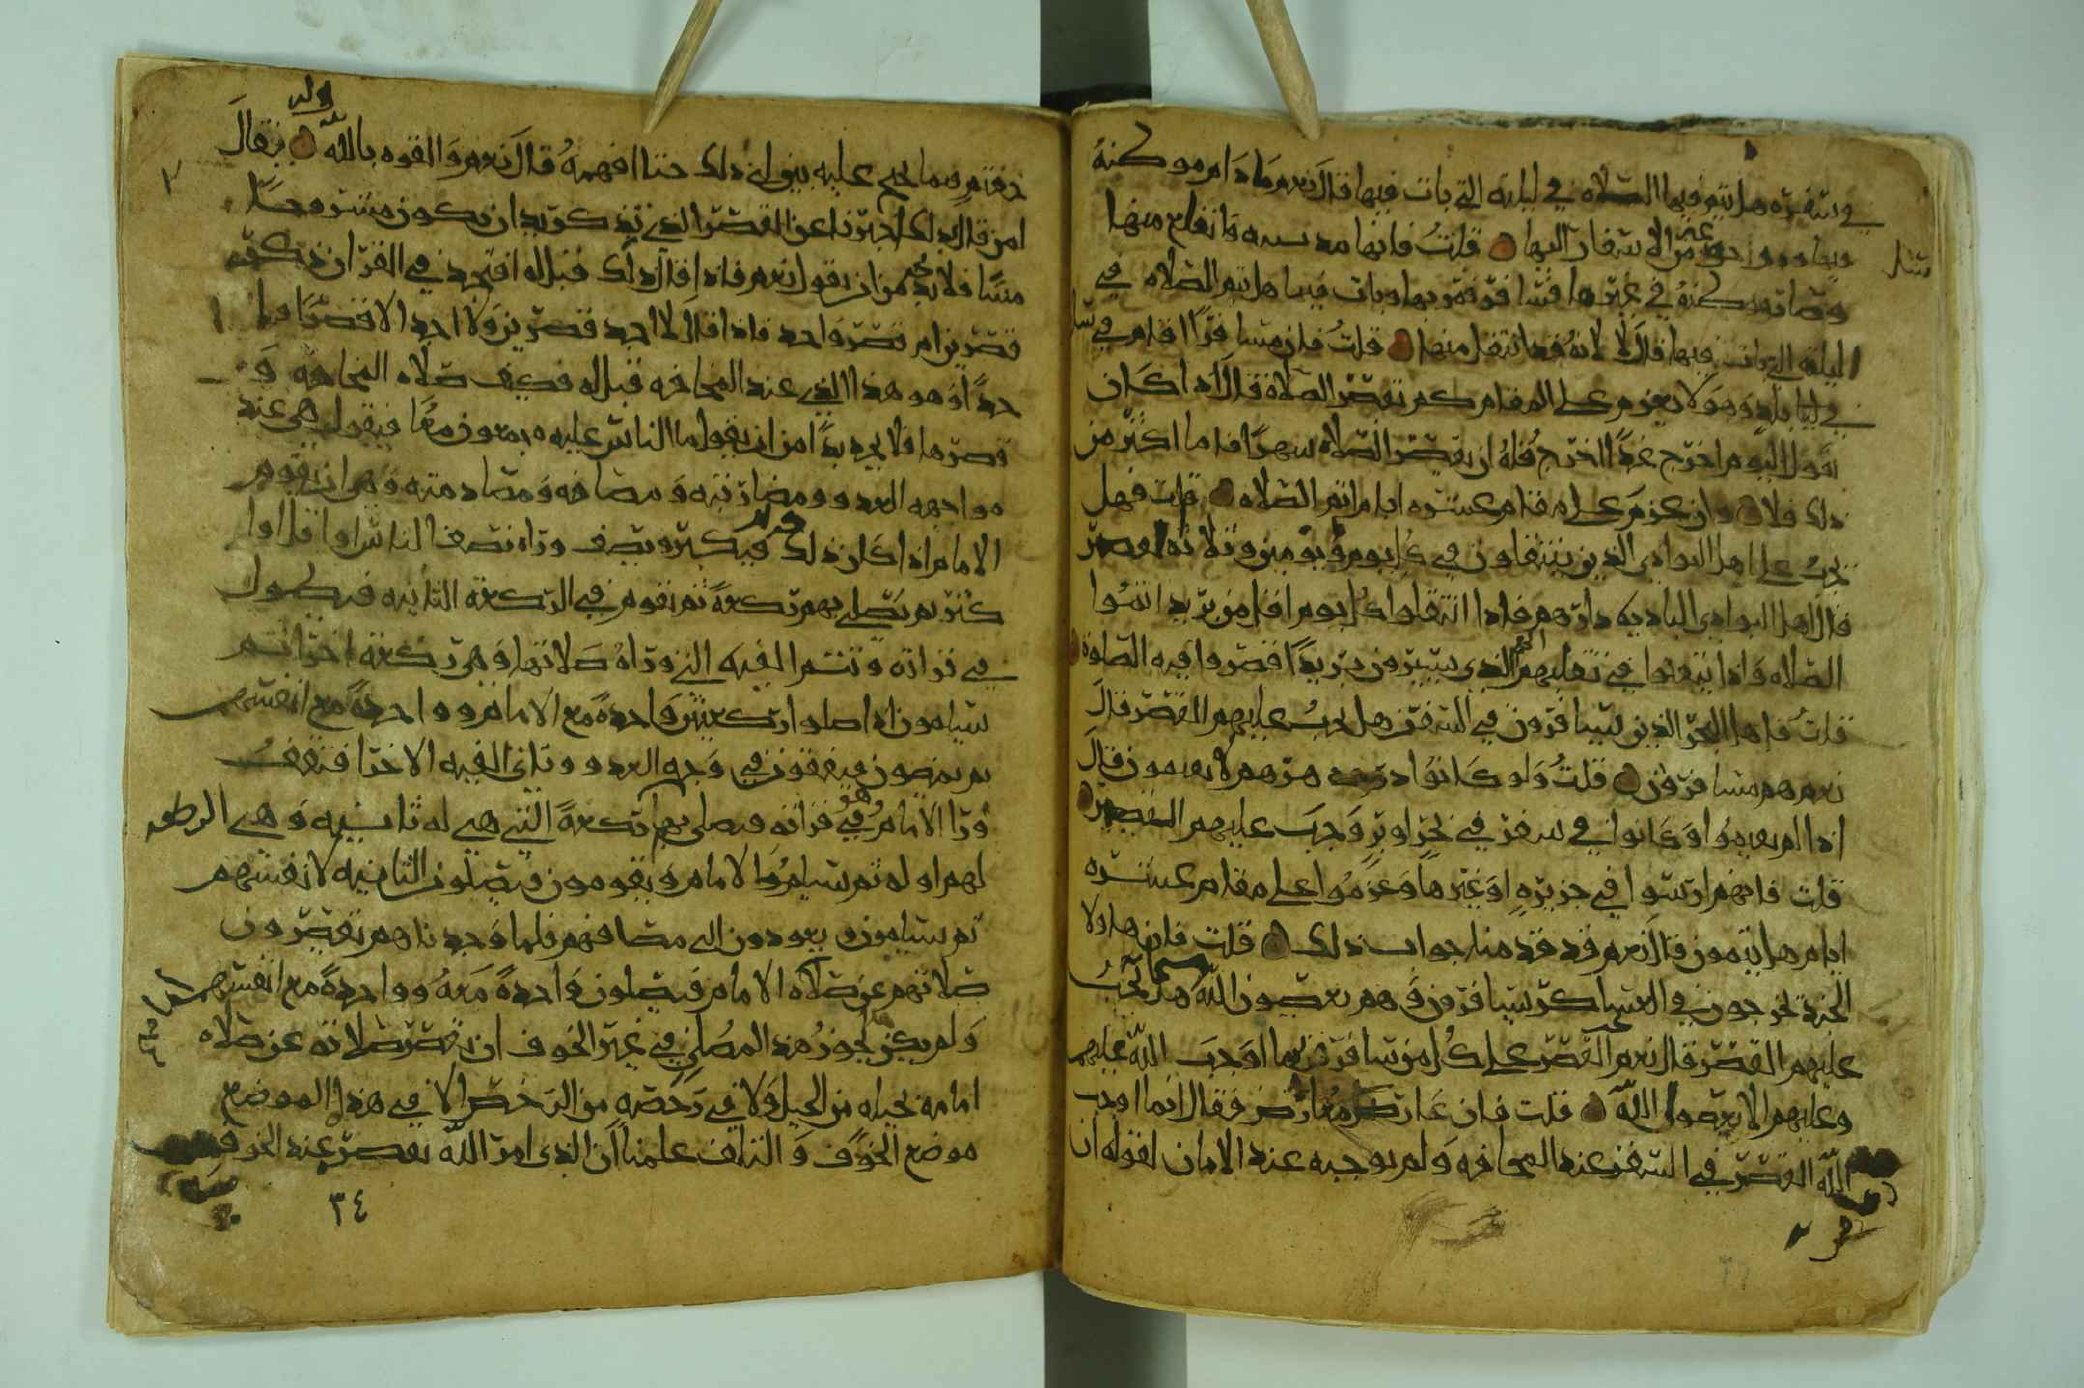 في سفره هل يتم فيها الصلاه في ليلته التي بات فيها قال نعم ما دام موكنه
فيها وهو احد من الاسفار اليها قلت فانها مدينته فانقلع منها
وصار موكنه في غيرها فسافر فمر بها وبات فيها هل يتم الصلاه في
الليله التي بات فيها قال لا لانه قد انتقل منها قلت فان مسافرا اقام في
في بلد وهو لا يعزم على المقام كم يقصر الصلاة قال اذا كان
يقول اليوم اخرج غدا اخرج فله ان يقصر الصلاه شهرا فاما اكثر من
ذلك فلا وان عزم على مقام عشره ايام اتم الصلاه قلت فهل
يجب على اهل البوادي الذين ينتقلون في كل يوم ويومين وثلاثه القصر
قال اهل البوادي الباديه دارهم فاذا انتقلوا كل يوم اقل من بريد اتموا
الصلاه واذا تبعدوا في تنقلهم الذي يسيرون بريدا قصروا فيه الصلوة
قلت فاهل البحر الذين يسافرون في السفن هل يجب عليهم القصر قال
نعم هم مسافرون قلت ولو كانوا دهرهم لا يقيمون قال
اذا لم يقيموا وكانوا في سفر في بحر او بر وجب عليهم التقصير
قلت فانهم ارسوا في جزيره او غيرها وعزموا على مقام عشره
ايام هل يتمون قال نعم قد قدمنا جواب ذلك قلت فان هاولا
الجند يخرجون في العساكر يسافرون وهم يعصون الله هل يجب
عليهم القصر قال نعم القصر على كل من سافر بما اوجب الله عليهم
وعليهم الا يعصوا الله قلت فان عارض معارض فقال انما اوجب
الله القصر في السفر عند المخافه ولم يوجبه عند الامان لقوله ان
خفتم فما يحتج عليه بين لي ذلك حتا افهمه قال نعم والقوه بالله يقال
لمن قال بذلك اخبرنا عن القصر الذي تذكر يريد ان يكون مشروحا
مبينا فلا بد من ان يقول نعم فاذا قال ذلك قيل له افتجد في القران ذكر
قصرين ام قصر واحد فاذا قال لا اجد قصرين ولا اجد الا قصرا وا
حدا وهو هذا الذي عند المخافه قيل له فصف صلاه المخافه و
قصرها فلا يجد بدا من ان يقول ما الناس عليه مجمعون معا فيقول هي عند
مواجهه العدو ومضاربته ومصافه ومصادمته وهي ان يقوم
الامام اذا كان ذلك فيكبر ويصف وراه نصف الناس او اقل او
كثر ثم يصلي بهم ركعة ثم يقوم في الركعة الثانيه فيطول
في قراته وتتم الفيه التي وراه صلاتها وهي ركعة اخرا ثم
يسلمون اذا صلوا ركعتين واحدة مع الامام وواحدة مع انفسهم
ثم يمضون فيقفون في وجه العدو وتاتي الفيه الاخرا فتقف
ورا الامام وهو في قراته فيصلي بهم الركعة التي هي له ثانيه وهي
لهم اوله ثم يسلم الامام ويقومون فيصلون الثانيه لانفسهم
ثم يسلمون ويعودون الى مصافهم فلما وجدناهم يقصرون
صلاتهم عن صلاه الامام فيصلون واحدة معه وواحدة مع انفسهم
ولم يكن يجوز هذا المصلي في غير الخوف ان يقصر صلاته عن صلاه
امامه بحيله من الحيل ولا في رخصه من الرخص الا في هذا الموضع
موضع الخوف والتلف علمنا ان الذي امر الله بقصره عند الخوف
٣٤